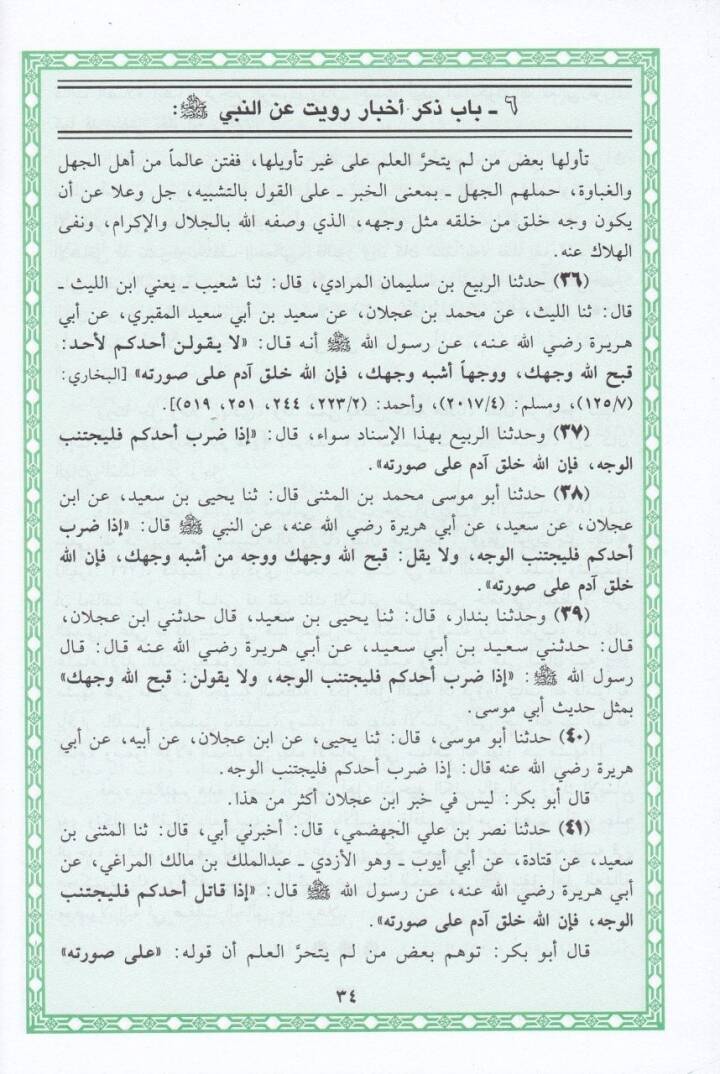 ٦ ـ باب ذكر أخبار رويت عن النبي ﷺ:
تأولها بعض من لم يتحرَّ العلم على غير تأويلها، ففتن عالماً من أهل الجهل
والغباوة، حملهم الجهل ـ بمعنى الخبر ـ على القول بالتشبيه، جل وعلا عن أن
يكون وجه خلق من خلقه مثل وجهه، الذي وصفه الله بالجلال والإكرام، ونفى
الهلاك عنه.
(٣٦) حدثنا الربيع بن سليمان المرادي، قال: ثنا شعيب ـ يعني ابن الليث ـ
قال: ثنا الليث، عن محمد بن عجلان، عن سعيد بن أبي سعيد المقبري، عن أبي
هريرة رضي الله عنه، عن رسول الله ﷺ أنه قال: «لا يقولن أحدكم لأحد:
قبح الله وجهك، ووجهاً أشبه وجهك، فإن الله خلق آدم على صورته» [البخاري:
(١٢٥/٧)، ومسلم: (٢٠١٧/٤)، وأحمد: (٢٢٣/٢، ٢٤٤، ٢٥١، ٥١٩)].
(٣٧) وحدثنا الربيع بهذا الإسناد سواء، قال: «إذا ضرب أحدكم فليجتنب
الوجه، فإن الله خلق آدم على صورته».
(٣٨) حدثنا أبو موسى محمد بن المثنى قال: ثنا يحيى بن سعيد، عن ابن
عجلان، عن سعيد، عن أبي هريرة رضي الله عنه، عن النبي ﷺ قال: «إذا ضرب
أحدكم فليجتنب الوجه، ولا يقل: قبح الله وجهك ووجه من أشبه وجهك، فإن الله
خلق آدم على صورته»
(٣٩) وحدثنا بندار، قال: ثنا يحيى بن سعيد، قال حدثني ابن عجلان،
قال: حدثني سعيد بن أبي سعيد، عن أبي هريرة رضي الله عنه قال: قال
رسول الله ﷺ: «إذا ضرب أحدكم فليجتنب الوجه، ولا يقولن: قبح الله وجهك»
بمثل حديث أبي موسى.
(٤٠) حدثنا أبو موسى، قال: ثنا يحيى، عن ابن عجلان، عن أبيه، عن أبي
هريرة رضي الله عنه قال: إذا ضرب أحدكم فليجتنب الوجه.
قال أبو بكر: ليس في خبر ابن عجلان أكثر من هذا.
(٤١) حدثنا نصر بن علي الجهضمي، قال: أخبرني أبي، قال: ثنا المثنى بن
سعيد، عن قتادة، عن أبي أيوب ـ وهو الأزدي ـ عبدالملك بن مالك المراغي، عن
أبي هريرة رضي الله عنه، عن رسول الله ﷺ قال: «إذا قاتل أحدكم فليجتنب
الوجه، فإن الله خلق آدم على صورته».
قال أبو بكر: توهم بعض من لم يتحرَّ العلم أن قوله: «على صورته»
٣٤